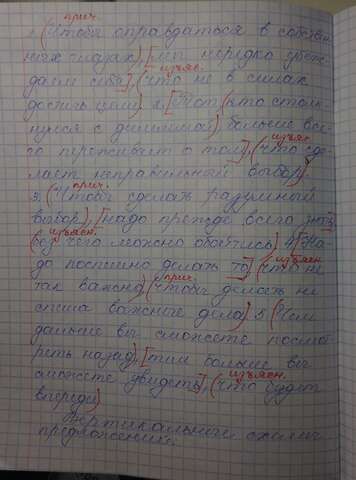 прич.
1. (Чтобы оправдаться в собствен-
ных глазах), [мы нередко убеж-
даем себя], изъясн. (что не в силах
достичь цели) 2. [Тот (кто столк-
нулся с дилеммой) больше все-
го переживает о том], изъясн. (что сде-
лает неправильный выбор)
3. прич. (Чтобы сделать разумный
выбор), [надо прежде всего знать]
изъясн. (без чего можно обойтись) 4 [На-
до поспешно делать то] изъясн. (что не
так важно) прич. (чтобы делать не
спеша важные дела) 5 (Чем
дальше вы сможете посмот-
реть назад), [тем больше вы
сможете увидеть], изъясн. (что будет
впереди)
Вертикальные схемы
предложений.